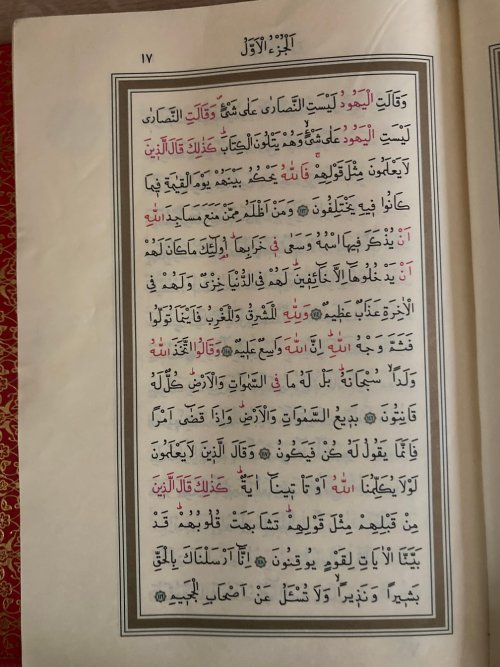 اَلْجُزْءُ الْاَوَّلُ
١٧
وَقَالَتِ الْيَهُودُ لَيْسَتِ النَّصَارٰى عَلٰى شَيْءٍۖ وَقَالَتِ النَّصَارٰى
لَيْسَتِ الْيَهُودُ عَلٰى شَيْءٍۙ وَهُمْ يَتْلُونَ الْكِتَابَۜ كَذٰلِكَ قَالَ الَّذ۪ينَ
لَا يَعْلَمُونَ مِثْلَ قَوْلِهِمْۚ فَاللّٰهُ يَحْكُمُ بَيْنَهُمْ يَوْمَ الْقِيٰمَةِ ف۪يمَا
كَانُوا ف۪يهِ يَخْتَلِفُونَ ﴿١١٣﴾ وَمَنْ اَظْلَمُ مِمَّنْ مَنَعَ مَسَاجِدَ اللّٰهِ
اَنْ يُذْكَرَ ف۪يهَا اسْمُهُ وَسَعٰى ف۪ي خَرَابِهَاۜ اُو۬لٰٓئِكَ مَا كَانَ لَهُمْ
اَنْ يَدْخُلُوهَٓا اِلَّا خَٓائِف۪ينَۜ لَهُمْ فِي الدُّنْيَا خِزْيٌ وَلَهُمْ فِي
الْاٰخِرَةِ عَذَابٌ عَظ۪يمٌ ﴿١١٤﴾ وَلِلّٰهِ الْمَشْرِقُ وَالْمَغْرِبُ فَاَيْنَمَا تُوَلُّوا
فَثَمَّ وَجْهُ اللّٰهِۜ اِنَّ اللّٰهَ وَاسِعٌ عَل۪يمٌ ﴿١١٥﴾ وَقَالُوا اتَّخَذَ اللّٰهُ
وَلَدًاۙ سُبْحَانَهُۜ بَلْ لَهُ مَا فِي السَّمٰوَاتِ وَالْاَرْضِۜ كُلٌّ لَهُ
قَانِتُونَ ﴿١١٦﴾ بَد۪يعُ السَّمٰوَاتِ وَالْاَرْضِۜ وَاِذَا قَضٰٓى اَمْرًا
فَاِنَّمَا يَقُولُ لَهُ كُنْ فَيَكُونُ ﴿١١٧﴾ وَقَالَ الَّذ۪ينَ لَا يَعْلَمُونَ
لَوْلَا يُكَلِّمُنَا اللّٰهُ اَوْ تَأْت۪ينَٓا اٰيَةٌۜ كَذٰلِكَ قَالَ الَّذ۪ينَ
مِنْ قَبْلِهِمْ مِثْلَ قَوْلِهِمْۜ تَشَابَهَتْ قُلُوبُهُمْۜ قَدْ
بَيَّنَّا الْاٰيَاتِ لِقَوْمٍ يُوقِنُونَ ﴿١١٨﴾ اِنَّٓا اَرْسَلْنَاكَ بِالْحَقِّ
بَش۪يرًا وَنَذ۪يرًاۙ وَلَا تُسْـَٔلُ عَنْ اَصْحَابِ الْجَح۪يمِ ﴿١١٩﴾